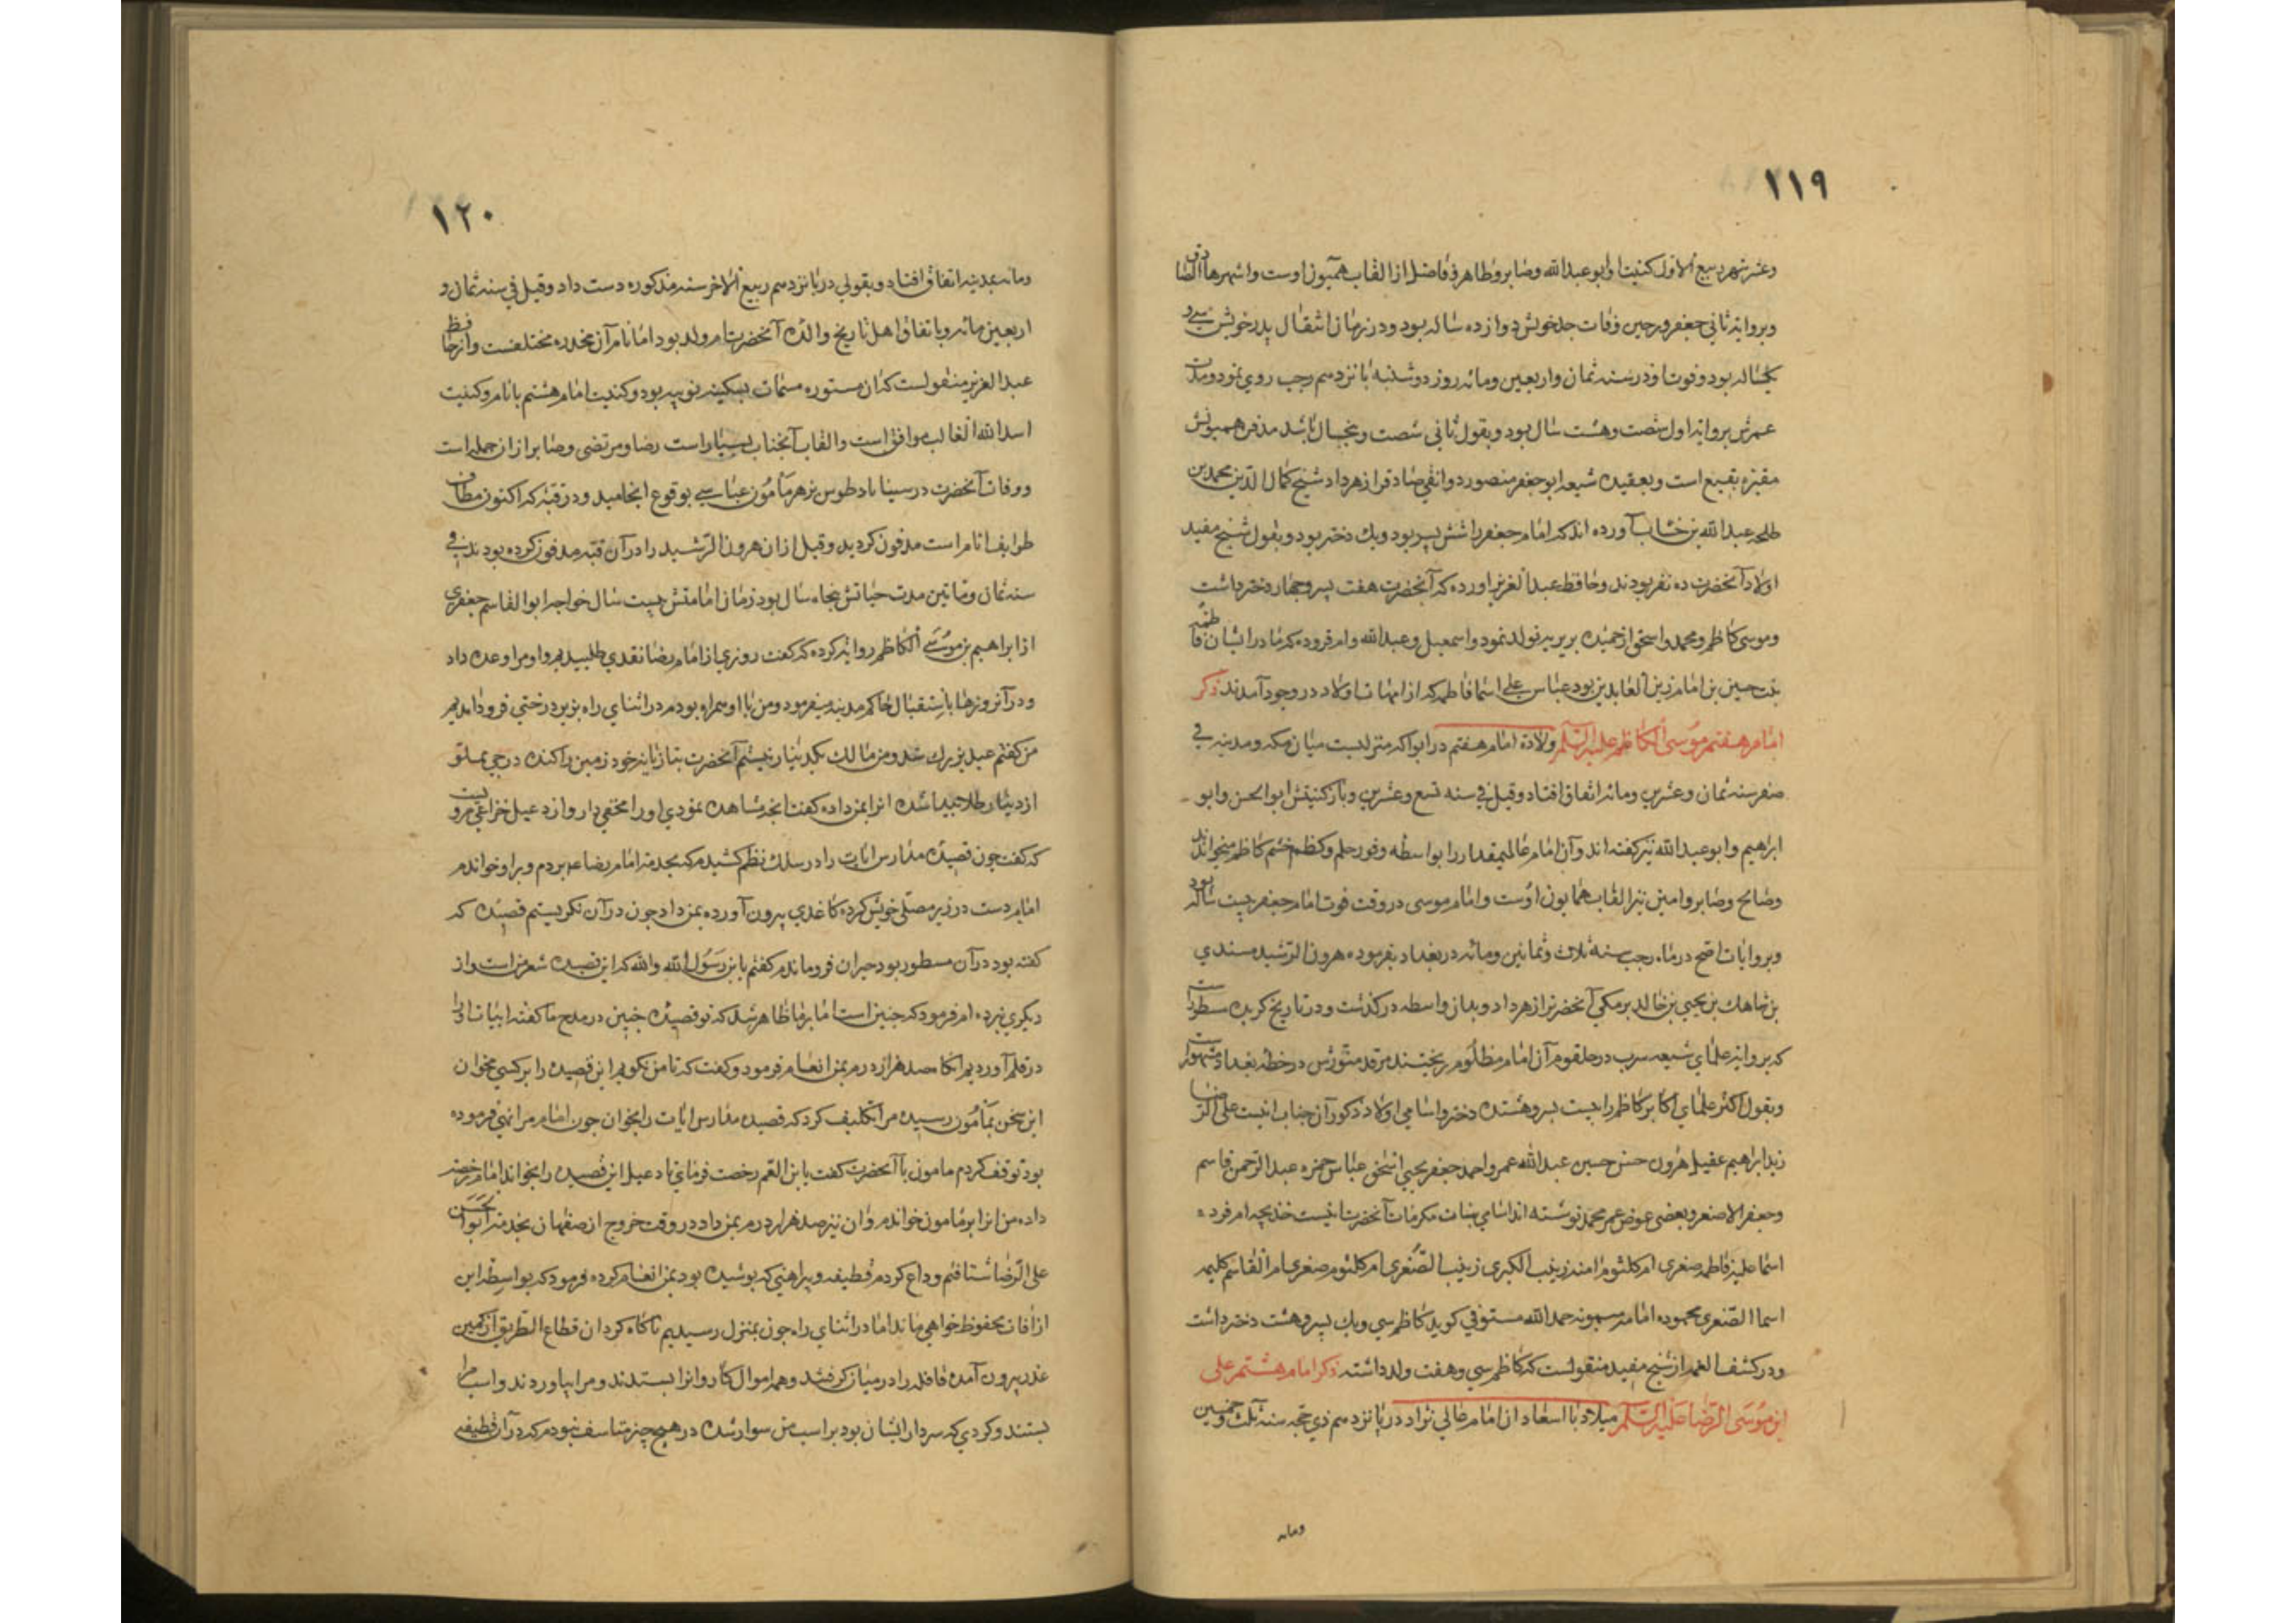 ١١٩
وعشر شهر ربیع الاول کنیت او ابو عبدالله وصابر وطاهر وفاضل از القاب همیون اوست واشهرها الصادق
وبروایة ثانی جعفر در حین وفات جد خویش دوازده ساله بود ودر زمان انتقال پدر خویش سی و
یکساله بود وفوت او در سنه ثمان واربعین ومائه روز دوشنبه پانزدهم رجب روی نمود ومدت
عمرش بروایة اول شصت وهشت سال بود وبقول ثانی شصت وپنجسال باشد مدفن همیونش
مقبره بقیع است وبعقیده شیعه ابو جعفر منصور دوانقی صادق را زهر داد شیخ کمال الدین محمد بن
طلحه عبدالله بن خشاب آورده اند که امام جعفر را شش پسر بود ویك دختر بود وبقول شیخ مفید
اولاد آنحضرت ده نفر بودند وحافظ عبدالعزیز اورده که آنحضرت هفت پسر وچهار دختر داشت
وموسی کاظم ومحمد واسحق از حمیده بربریه تولد نمود واسمعیل وعبدالله وام فروه که مادر ایشان فاطمه
بنت حسین بن امام زین العابدین بود عباس علی اسما فاطمه که از امهات اولاد در وجود آمدند ذکر
امام هفتم موسی الکاظم علیه السلم ولادة امام هفتم در ابوا که منزلیست میان مکه ومدینه فی
صفر سنه ثمان وعشرین ومائه اتفاق افتاد وقیل فی سنه تسع وعشرین ومائه کنیتش ابو الحسن وابو
ابراهیم وابو عبدالله نیز کفته اند وآن امام عالیمقدار را بواسطه وفور حلم وکظم خشم کاظم میخوانند
وصالح وصابر وامین نیز القاب همایون اوست وامام موسی در وقت فوت امام جعفر بیست ساله بود
وبروایات اصح در ماه رجب سنه ثلاث وثمانین ومائه در بغداد بفرموده هرون الرشید سندی
بن شاهك بن یحیی بن خالد برمکی آنحضرت را زهر داد وبدان واسطه در کذشت ودر تاریخ کزیده مسطورست
که بروایة علمای شیعه سرب در حلقوم آن امام مظلوم ریختند مرقد منورش در خطه بغداد مشهورست
وبقول اکثر علمای اکابر کاظم را بیست پسر وهشتده دختر واسامی اولاد ذکور آن جناب اینست علی الرضا
زید ابراهیم عقیل هرون حسن حسین عبدالله عمر واحمد جعفر یحیی اسحق عباس حمزه عبدالرحمن قاسم
وجعفر الاصغر وبعضی عوض عمر محمد نوشته اند اسامی بنات مکرمات آنحضرت اینست خدیجه ام فروه
اسما علیه فاطمه صغری ام کلثوم امنه زینب الکبری زینب الصغری ام کلثوم صغری ام القاسم کلیمه
اسما الصغری محموده امامه میمونه حمدالله مستوفی کوید کاظم سی ویك پسر وهشت دختر داشت
ودر کشف الغمه از شیخ مفید منقولست که کاظم سی وهفت ولد داشته ذکر امام هشتم علی
ابن موسی الرضا علیه السلم میلاد با اسعاد ان امام عالی نژاد در پانزدهم ذی حجه سنه ثلث وخمسین
ومایه
١٢٠
ومایه بمدینه اتفاق افتاد وبقولی در یانزدهم ربیع الاخر سنه مذکوره دست داد وقیل فی سنه ثمان و
اربعین ومائه وباتفاق اهل تاریخ والده آنحضرت ام ولد بود اما نام آن مخدره مختلفست واز حافظ
عبدالعزیز منقولست که ان مستوره مسمات بسکینه نوبیه بود وکنیت امام هشتم با نام وکنیت
اسدالله الغالب موافق است والقاب آنجناب بسیار است رضا ومرتضی وصابر ازان جمله است
ووفات آنحضرت در سناباد طوس بزهر مأمون عباسی بوقوع انجامید ودر قبه که اکنون مطاف
طوایف انام است مدفون کردید وقبل ازان هرون الرشید را در آن قبه مدفون کرده بودند فی
سنه ثمان ومأتین مدت حیاتش پنجاه سال بود زمان امامتش بیست سال خواجه ابوالقاسم جعفری
از ابراهیم بن موسی الکاظم روایة کرده که کفت روزی از امام رضا نقدی طلبیدم واو مرا وعده داد
ودر آنروزها باستقبال حاکم مدینه میفرمود ومن با او همراه بودم در اثنای راه بزیر درختی فرود امدیم
من کفتم عید بزرك شد ومن مالك یکدینار نیستم آنحضرت بتازیانه خود زمین را کنده درجی مملو
از دینار طلا پیدا شده انرا بمن داده کفت انچه مشاهده نمودی اورا مخفی دار واز دعبل خزاعی مرویست
که کفت چون قصیده مدارس ایات را در سلك نظم کشیدم که بخدمة امام رضا ع بردم وبرا وخواندم
امام دست در زیر مصلی خویش کرده کاغذی بیرون آورده بمن داد چون در آن نکریستم قصیده که
کفته بود در آن مسطور بود حیران فروماندم کفتم یابن رسول الله والله که این قصیده شعر من است واز
دیکری نبرده ام فرمود که چنین است اما برما ظاهر شد که تو قصیده چنین در مدح ما کفته ابیات او را
در قلم آوردیم انکاه صد هزار درم بمن انعام فرمود وکفت که تا من نکویم این قصیده را بر کسی مخوان
این سخن بمأمون رسیده مرا تکلیف کرد که قصیده مدارس ایات را بخوان چون امام مرا نهی فرموده
بود توقف کردم مامون با آنحضرت کفت یا بن العم رخصت فرمای تا دعبل این قصیده را بخواند امام رخصت
داده من انرا بر مامون خواندم وان نیز صد هزار درم بمن داد در وقت خروج از صفهان بخدمة ابو الحسن
علی الرضا شتافتم وداع کردم قطیفه وپیراهنی که پوشیده بود بمن انعام کرده فرمود که بواسطه این
از افات محفوظ خواهی ماند اما در اثنای راه چون بمنزل رسیدیم ناکاه کردان قطاع الطریق از کمین
غدر بیرون آمده قافله را در میان کرفتند وهمه اموال کاروانرا بستدند ومرا بیاوردند واسب مرا
بستند وکردی که سردار ایشان بود بر اسب من سوار شده در هیچ چیز متاسف نبودم که در آن قطیفه